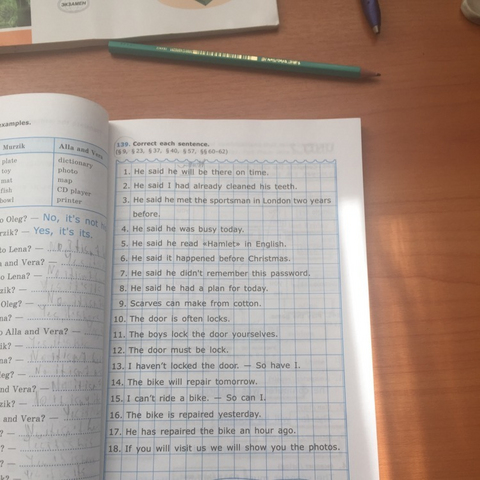 ЭКЗАМЕН
examples.
Murzik Alla and Vera
plate dictionary
toy photo
mat map
fish CD player
bowl printer
to Oleg? — No, it's not h
rzik? — Yes, it's its.
to Lena? —
a and Vera? —
o Lena? —
zik? —
Oleg? —
na? —
o Alla and Vera? —
ik? —
na? —
leg? —
nd Vera? —
zik? —
and Vera? —
? —
? —
? —
? —
139. Correct each sentence.
(§ 9, § 23, § 37, § 40, § 57, §§ 60–62)
1. He said he will be there on time.
2. He said I had already cleaned his teeth.
3. He said he met the sportsman in London two years
before.
4. He said he was busy today.
5. He said he read «Hamlet» in English.
6. He said it happened before Christmas.
7. He said he didn't remember this password.
8. He said he had a plan for today.
9. Scarves can make from cotton.
10. The door is often locks.
11. The boys lock the door yourselves.
12. The door must be lock.
13. I haven't locked the door. — So have I.
14. The bike will repair tomorrow.
15. I can't ride a bike. — So can I.
16. The bike is repaired yesterday.
17. He has repaired the bike an hour ago.
18. If you will visit us we will show you the photos.